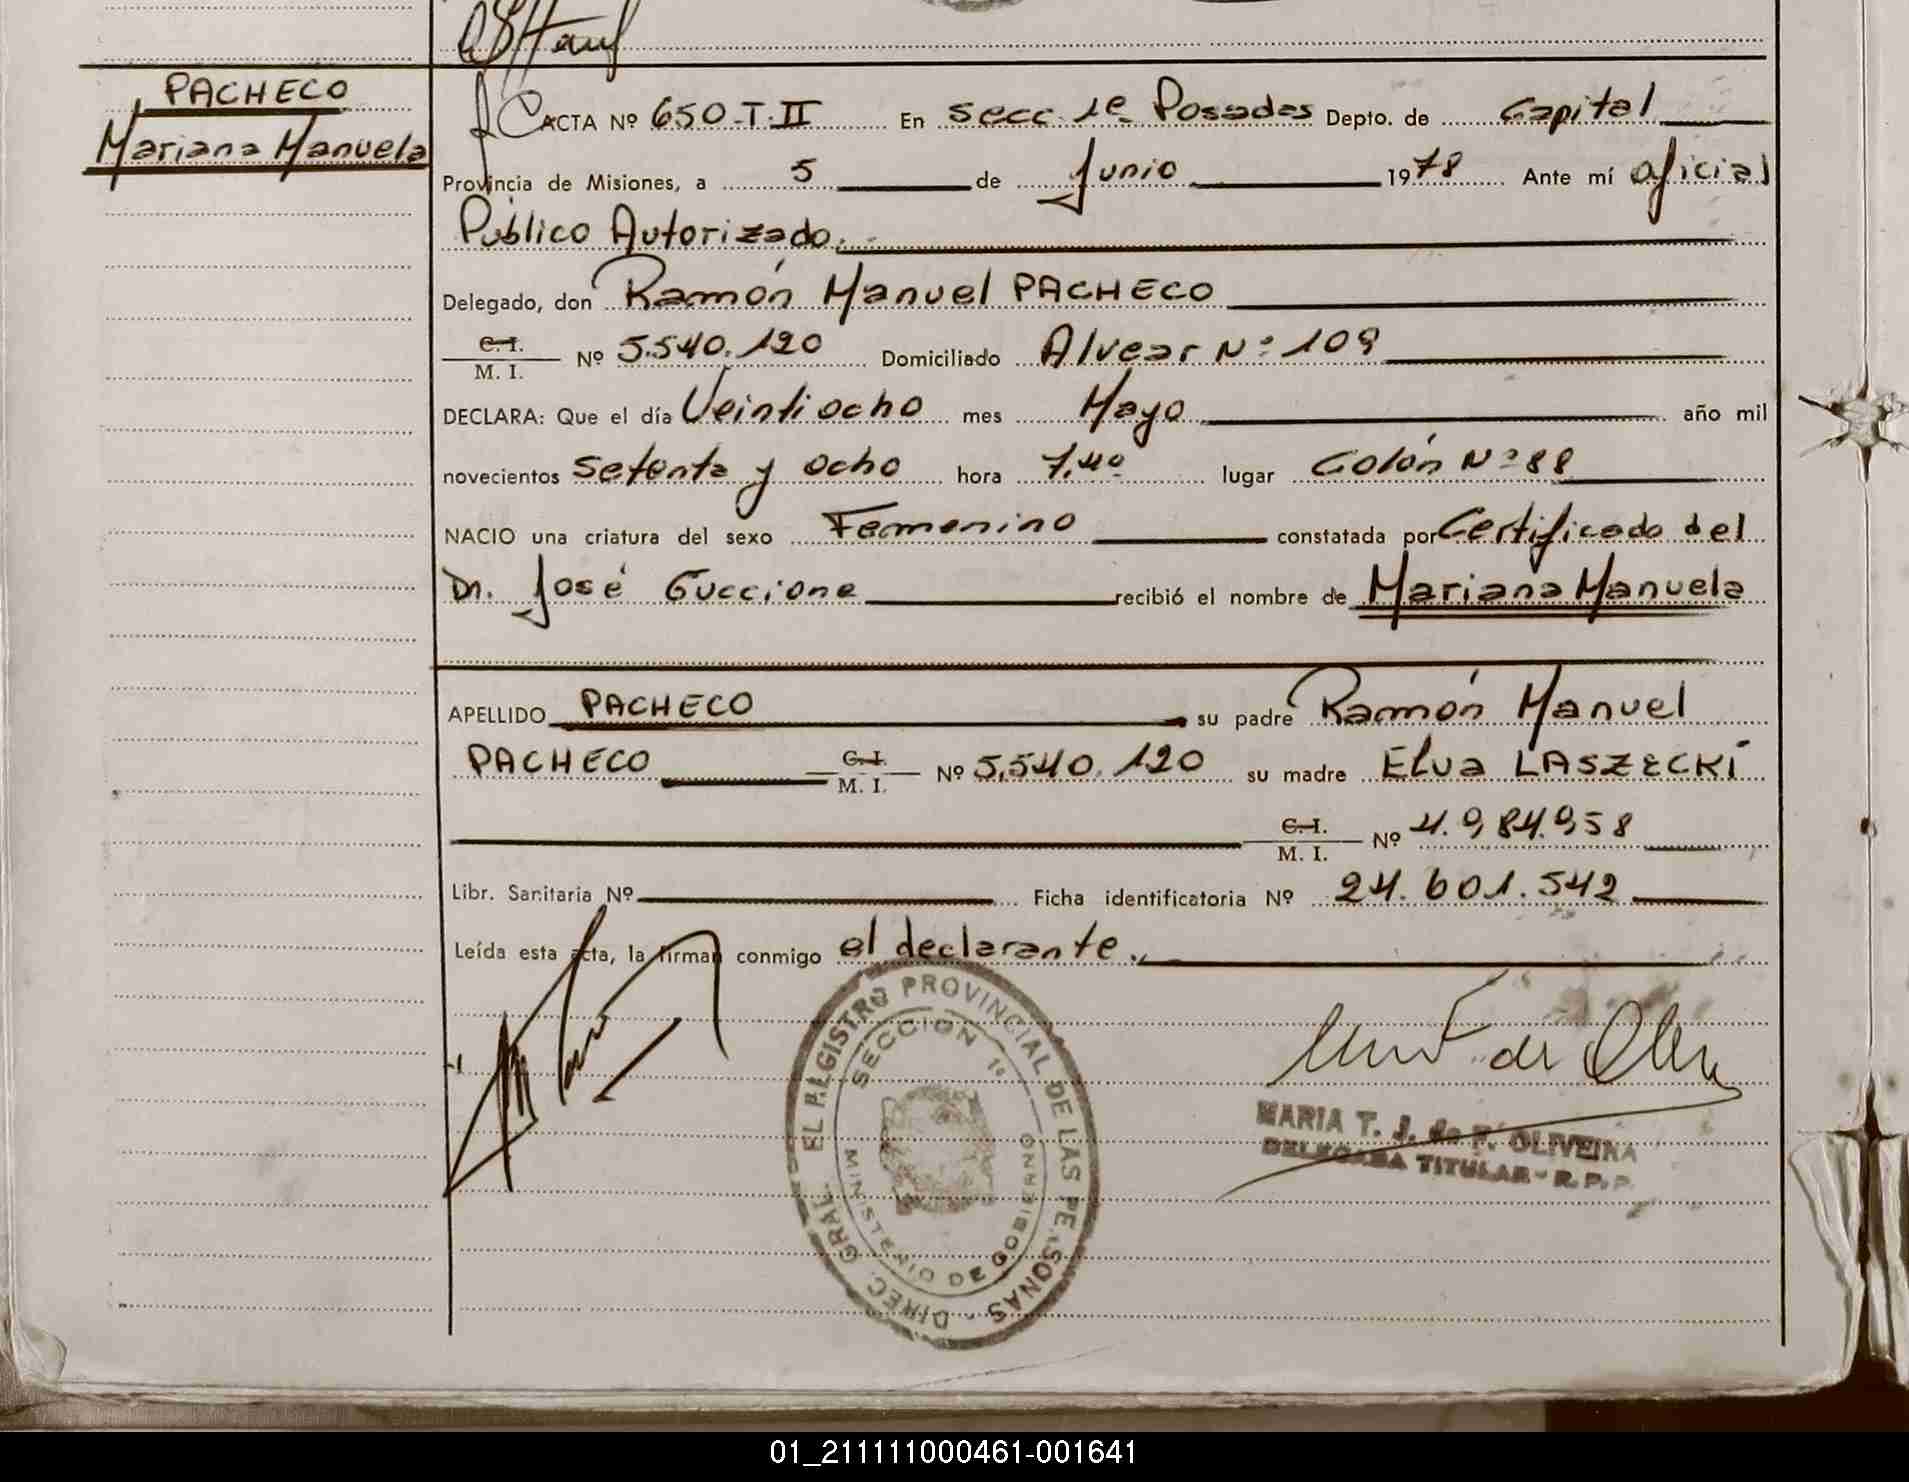 PACHECO
Mariana Manuela
ACTA Nº 650-T-II En Secc. 1e Posadas Depto. de Capital
Provincia de Misiones, a 5 de Junio 1978 Ante mí Oficial
Público Autorizado.
Delegado, don Ramón Manuel PACHECO
C.I. / M. I. Nº 5.540.120 Domiciliado Alvear Nº 109
DECLARA: Que el día Veintiocho mes Mayo año mil
novecientos Setenta y Ocho hora 7,40 lugar Colón Nº 88
NACIO una criatura del sexo Femenino constatada por Certificado del
Dr. José Guccione recibió el nombre de Mariana Manuela
APELLIDO PACHECO su padre Ramón Manuel
PACHECO C.I. / M. I. Nº 5.540.120 su madre Elva LASZECKI
C.I. / M. I. Nº 4.984.958
Libr. Sanitaria Nº Ficha identificatoria Nº 24.601.542
Leída esta acta, la firman conmigo el declarante.
DIREC. GRAL. EL REGISTRO PROVINCIAL DE LAS PERSONAS
SECCION 1º
MINISTERIO DE GOBIERNO
MARIA T. J. de F. OLIVEIRA
DELEGADA TITULAR - R. P. P.
01_211111000461-001641